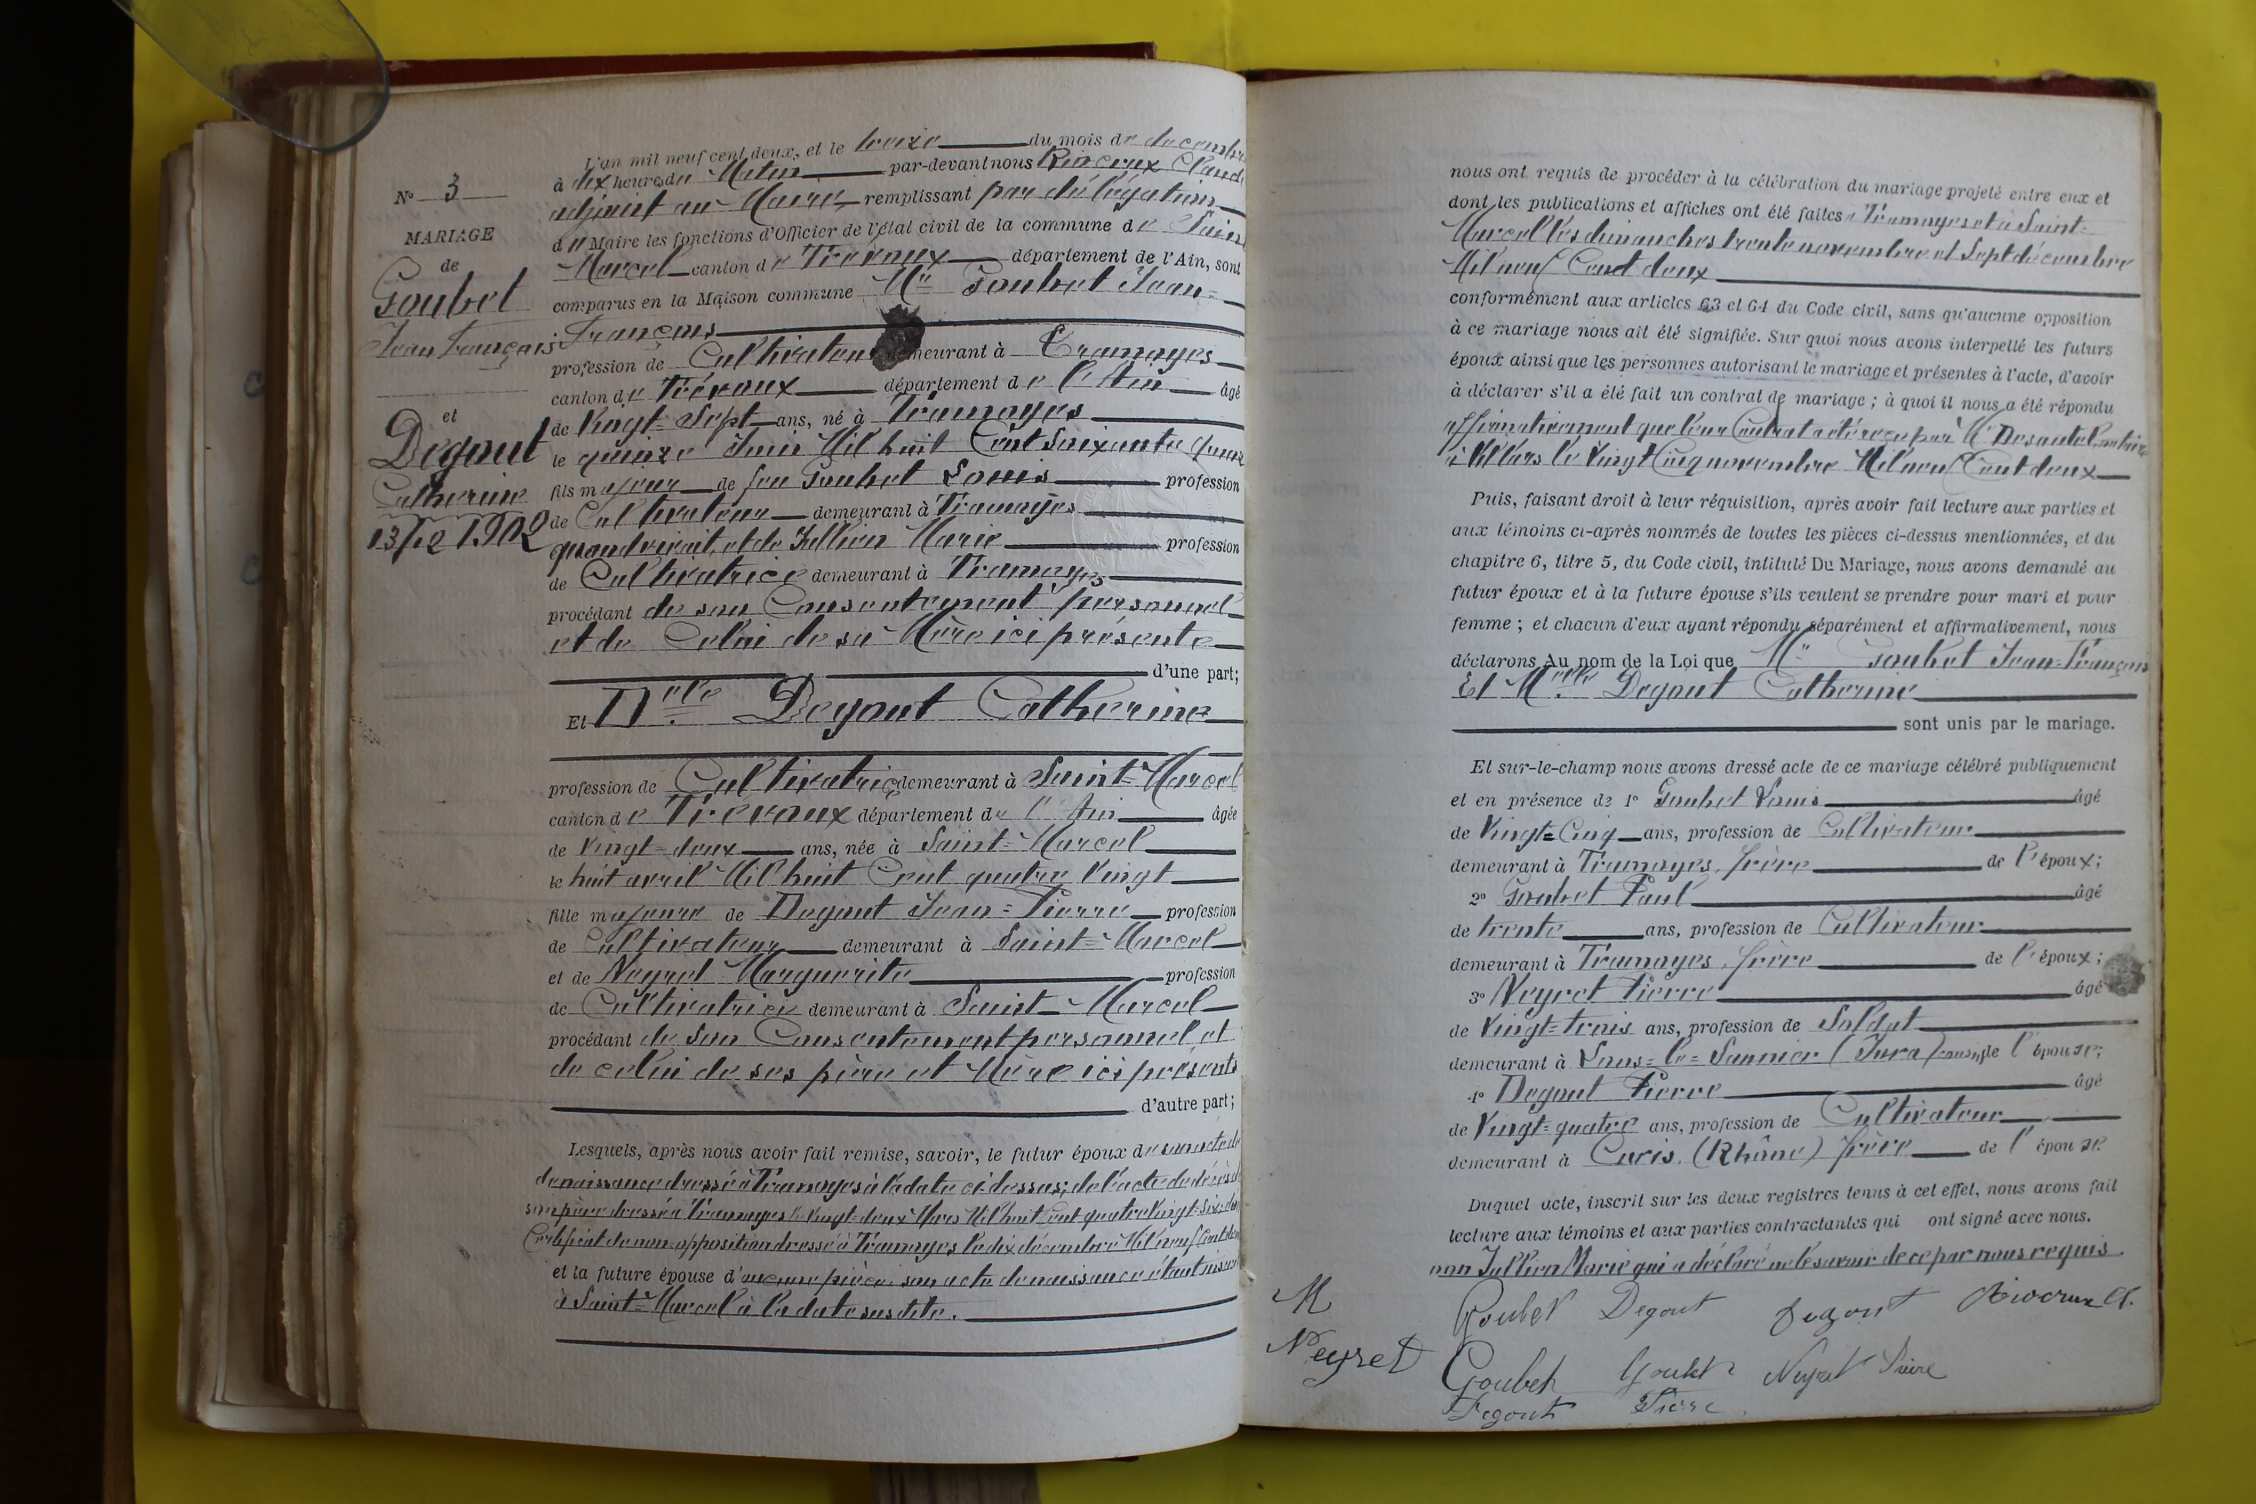 N° 3
MARIAGE
de
Goubet
Jean François
et
Degout
Catherine
13/12 1902
L'an mil neuf cent deux, et le treize du mois de decembre
à dix heures du Matin par-devant nous Rioceux Claude
adjoint au Maire remplissant par délégation
de Maire les fonctions d'Officier de l'état civil de la commune de Saint
Marcel canton de Trévoux département de l'Ain, sont
comparus en la Maison commune Mr Goubet Jean=
François
profession de Cultivateur demeurant à Tramoyes
canton de Trévoux département de l'Ain âgé
de Vingt=Sept ans, né à Tramoyes
le quinze Juin Mil huit Cent Soixante Quinze
fils majeur de feu Goubet Louis profession
de Cultivateur demeurant à Tramoyes
quand vivait, et de Jullien Marie profession
de Cultivatrice demeurant à Tramoyes
procédant de son Consentement personnel
et de Celui de sa Mère ici présente
d'une part;
Et Delle Degout Catherine
profession de Cultivatrice demeurant à Saint=Marcel
canton de Trévoux département de l'Ain âgée
de Vingt=deux ans, née à Saint=Marcel
le huit avril Mil huit Cent quatre Vingt
fille majeure de Degout Jean=Pierre profession
de Cultivateur demeurant à Saint=Marcel
et de Neyret Marguerite profession
de Cultivatrice demeurant à Saint-Marcel
procédant de son Consentement personnel et
de celui de ses père et Mère ici présents
d'autre part;
Lesquels, après nous avoir fait remise, savoir, le futur époux de son acte de
de naissance dressé à Tramoyes à la date ci dessus; de l'acte de décès de
son père dressé à Tramoyes le Vingt=deux Mars Mil huit Cent quatre Vingt=Six; du
Certificat de non-opposition dressé à Tramoyes le dix décembre Mil neuf Cent deux
et la future épouse d'aucune pièce son acte de naissance étant inscrit
à Saint=Marcel à la date susdite.
nous ont requis de procéder à la célébration du mariage projeté entre eux et
dont les publications et affiches ont été faites à Tramoyes et à Saint=
Marcel les dimanches trente novembre et Sept décembre
Mil neuf Cent deux
conformément aux articles 63 et 64 du Code civil, sans qu'aucune opposition
à ce mariage nous ait été signifiée. Sur quoi nous avons interpellé les futurs
époux ainsi que les personnes autorisant le mariage et présentes à l'acte, d'avoir
à déclarer s'il a été fait un contrat de mariage; à quoi il nous a été répondu
affirmativement que leur Contrat a été reçu par Me Desautel notaire
à Villars le Vingt Cinq novembre Mil neuf Cent deux
Puis, faisant droit à leur réquisition, après avoir fait lecture aux parties et
aux témoins ci-après nommés de toutes les pièces ci-dessus mentionnées, et du
chapitre 6, titre 5, du Code civil, intitulé Du Mariage, nous avons demandé au
futur époux et à la future épouse s'ils veulent se prendre pour mari et pour
femme; et chacun d'eux ayant répondu séparément et affirmativement, nous
déclarons Au nom de la Loi que Mr Goubet Jean=François
Et Melle Degout Catherine
sont unis par le mariage.
Et sur-le-champ nous avons dressé acte de ce mariage célébré publiquement
et en présence de 1° Goubet Louis âgé
de Vingt=Cinq ans, profession de Cultivateur
demeurant à Tramoyes, frère de l'époux;
2° Goubet Paul âgé
de trente ans, profession de Cultivateur
demeurant à Tramoyes, frère de l'époux;
3° Neyret Pierre âgé
de Vingt=trois ans, profession de Soldat
demeurant à Lons=le=Saunier (Jura) cousin de l'épouse;
4° Degout Pierre âgé
de Vingt=quatre ans, profession de Cultivateur
demeurant à Curis (Rhône) frère de l'épouse
Duquel acte, inscrit sur les deux registres tenus à cet effet, nous avons fait
lecture aux témoins et aux parties contractantes qui ont signé avec nous.
non Jullien Marie qui a déclaré ne le savoir de ce par nous requis
M Goubet Degout Degout Rioceux Cl.
Neyret Goubet Goubet Neyret Pierre
Degout Pierre